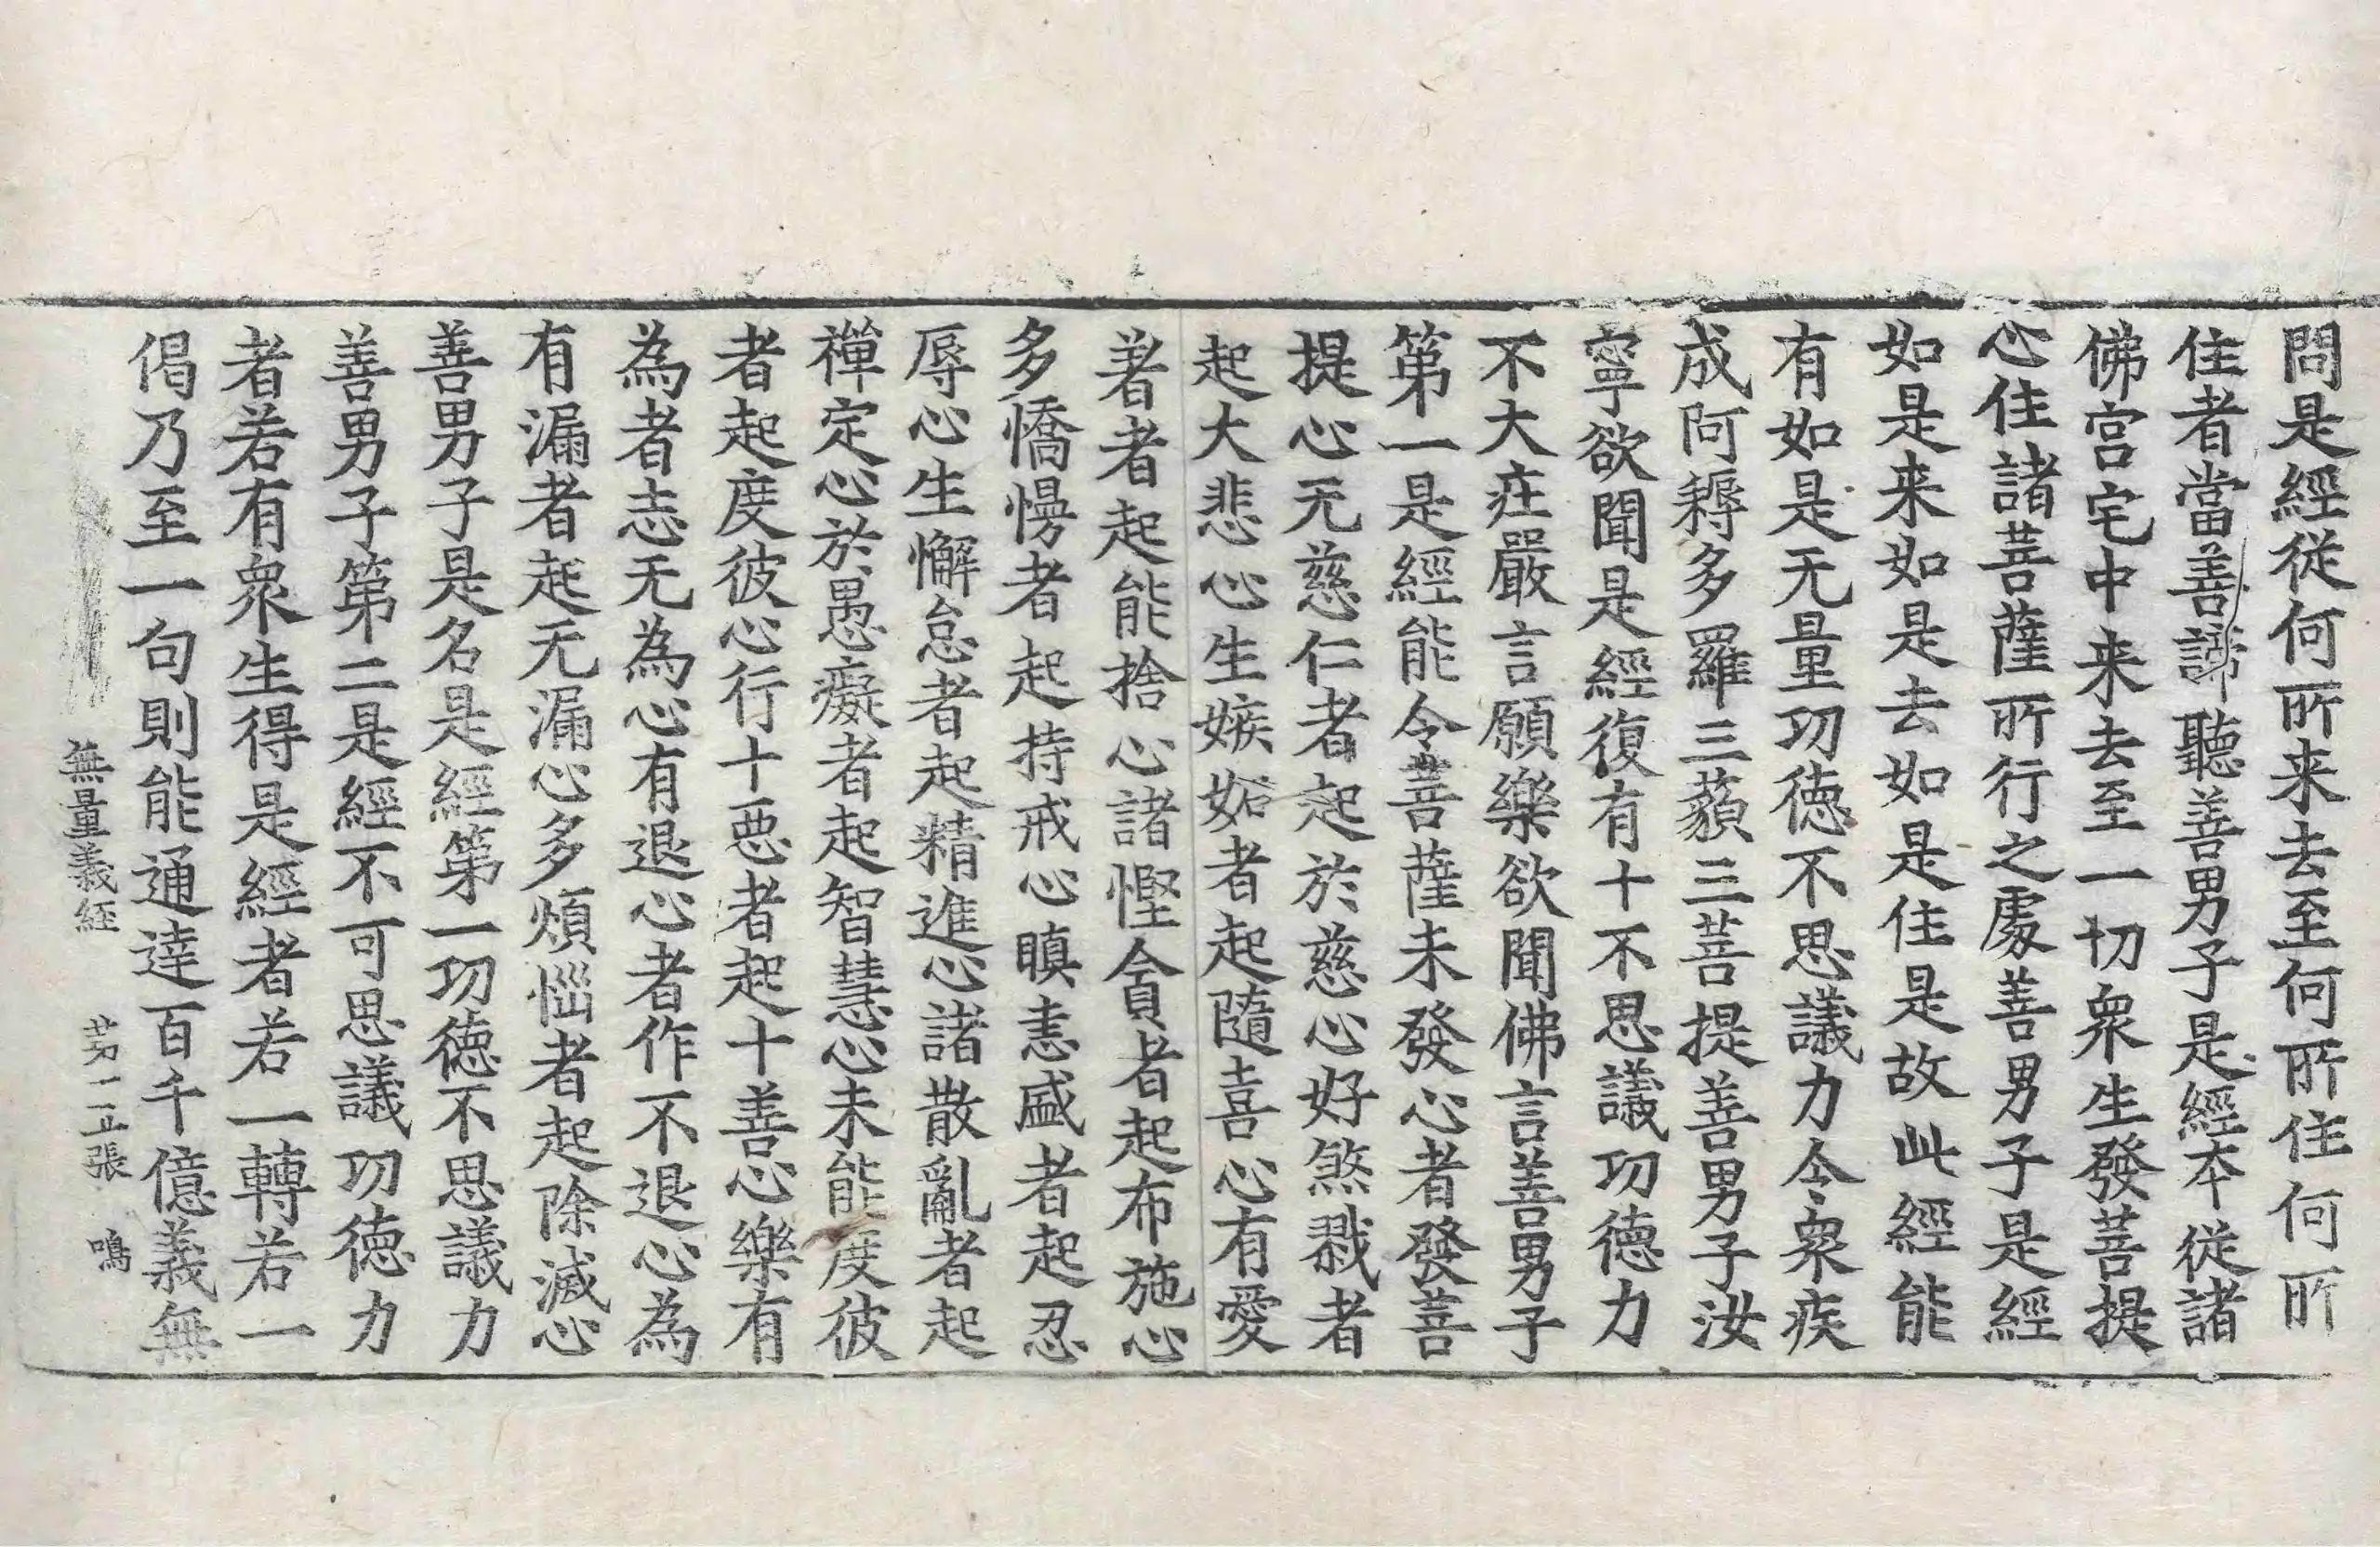 問是經從何所来去至何所住何所
住者當善諦聽善男子是經本從諸
佛宫宅中来去至一切衆生發菩提
心住諸菩薩所行之處善男子是經
如是来如是去如是住是故此經能
有如是无量功徳不思議力令衆疾
成阿耨多羅三藐三菩提善男子汝
寧欲聞是經復有十不思議功徳力
不大莊嚴言願樂欲聞佛言善男子
第一是經能令菩薩未發心者發菩
提心无慈仁者起於慈心好煞戮者
起大悲心生嫉妬者起隨喜心有愛
著者起能捨心諸慳貪者起布施心
多憍慢者起持戒心瞋恚盛者起忍
辱心生懈怠者起精進心諸散亂者起
禪定心於愚癡者起智慧心未能度彼
者起度彼心行十悪者起十善心樂有
為者志无為心有退心者作不退心為
有漏者起无漏心多煩惱者起除滅心
善男子是名是經第一功徳不思議力
善男子第二是經不可思議功徳力
者若有衆生得是經者若一轉若一
偈乃至一句則能通達百千億義無
無量義經 苐二五張 鳴